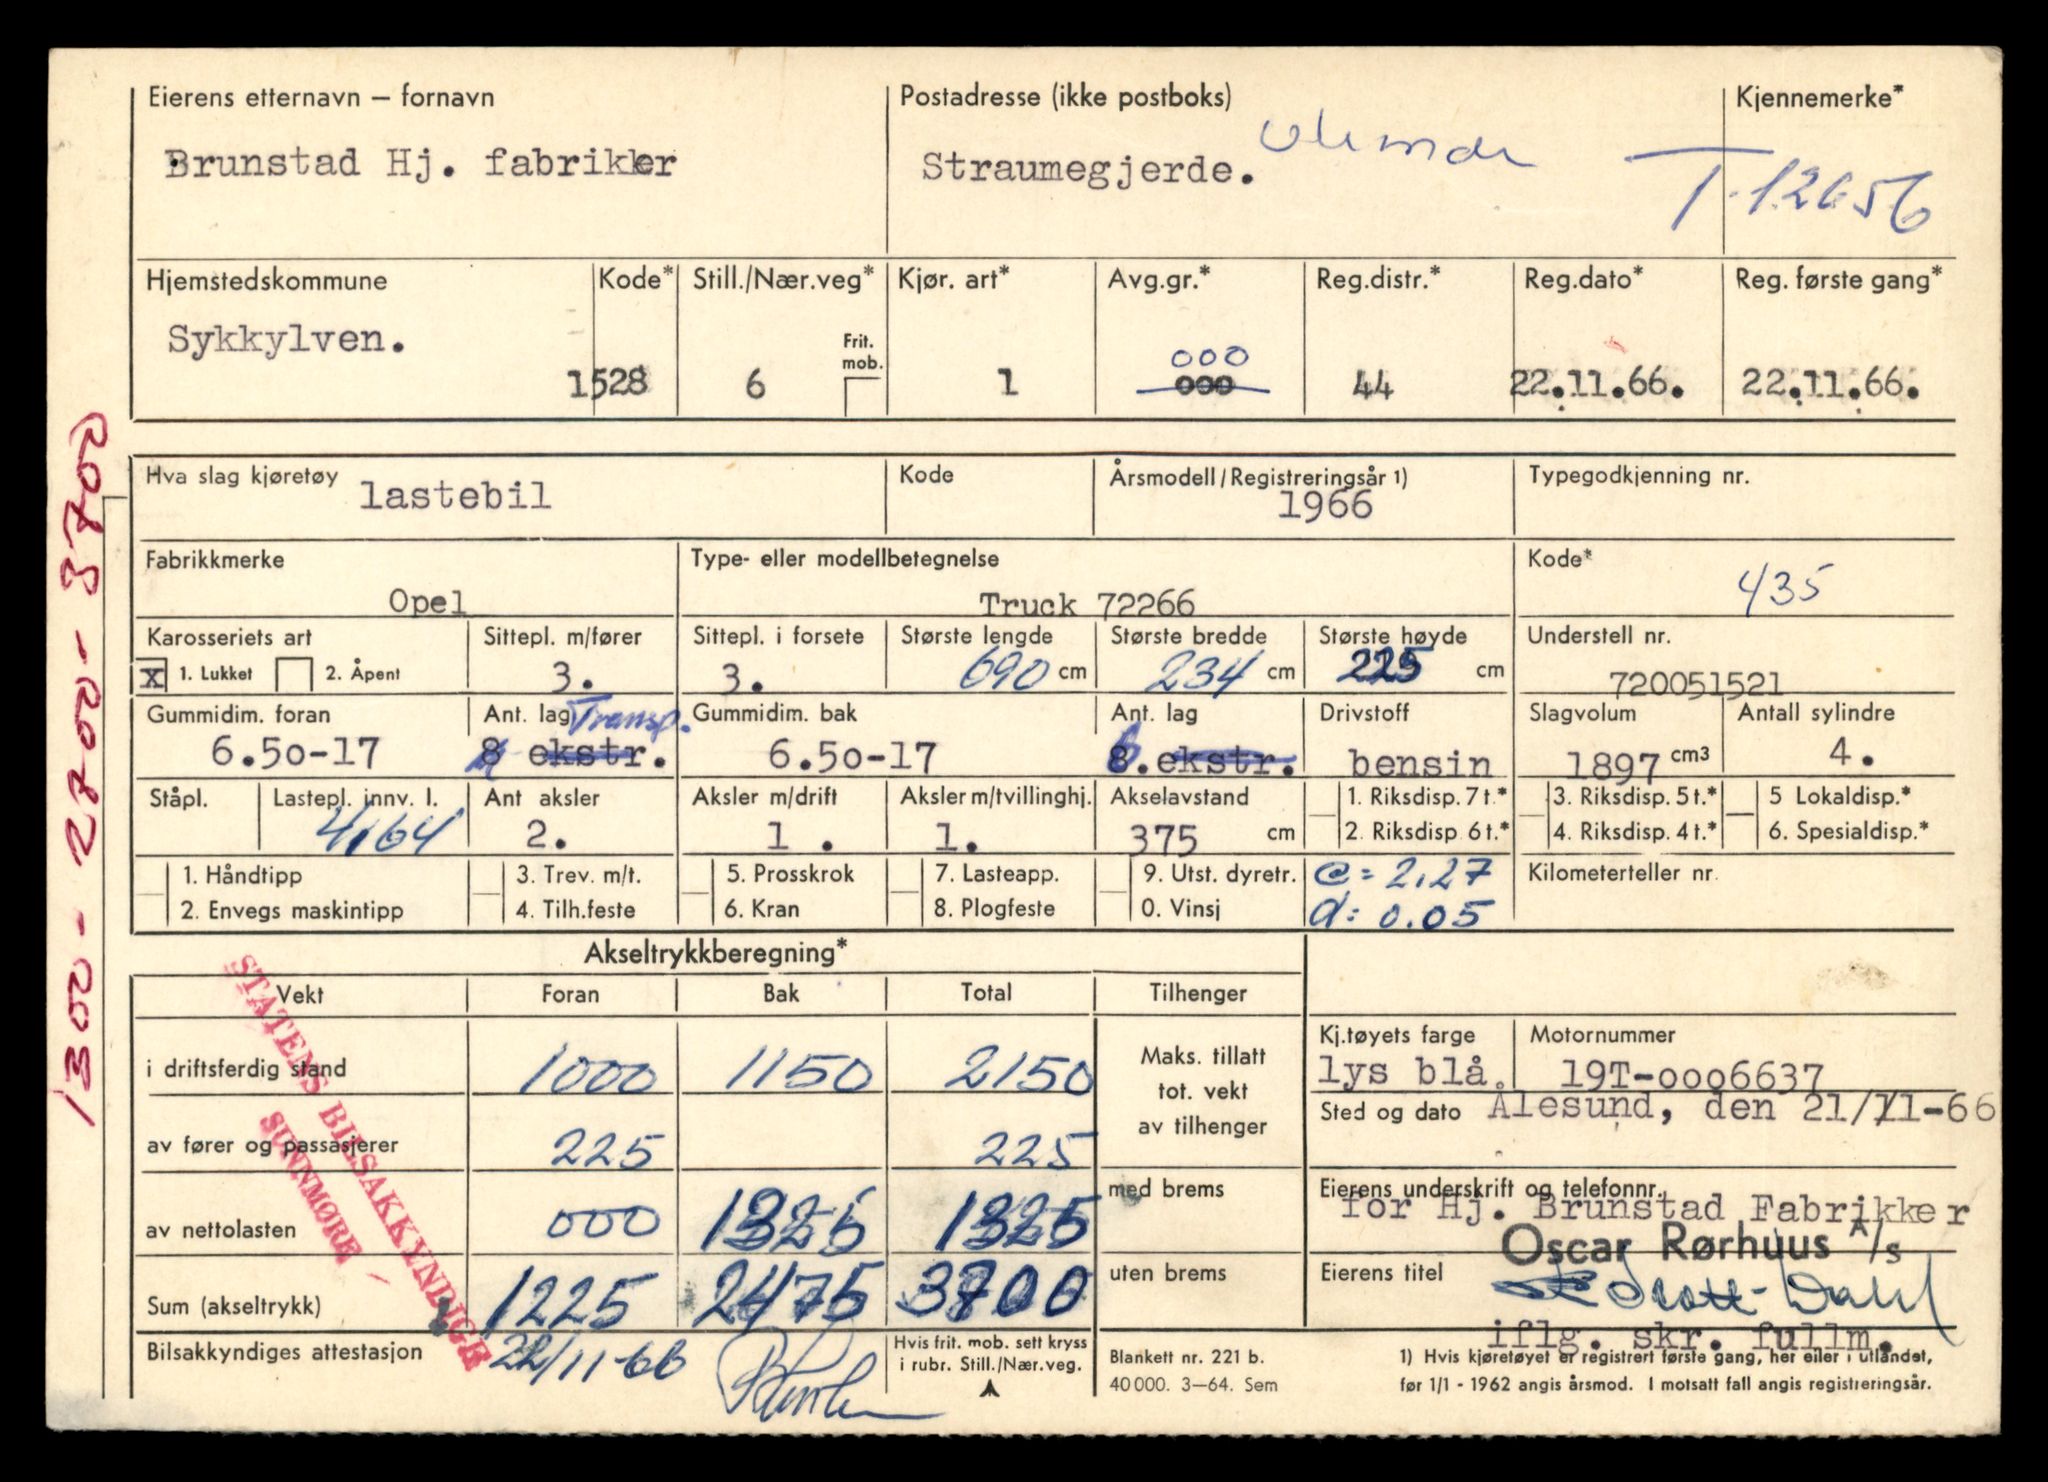 Eierens etternavn – fornavn Postadresse (ikke postboks) Kjennemerke*
Brunstad Hj. fabrikker Straumegjerde. T-12656
Hjemstedskommune Kode* Still./Nær.veg* Kjør. art* Avg.gr.* Reg.distr.* Reg.dato* Reg. første gang*
Sykkylven. Frit. mob. 000
1528 6 1 000 44 22.11.66. 22.11.66.
Hva slag kjøretøy lastebil Kode Årsmodell/Registreringsår 1) 1966 Typegodkjenning nr.
Fabrikkmerke Type- eller modellbetegnelse Kode*
Opel Truck 72266 435
Karosseriets art Sittepl. m/fører Sittepl. i forsete Største lengde Største bredde Største høyde Understell nr.
X 1. Lukket 2. Åpent 3. 3. 690 cm 234 cm 225 cm 720051521
Gummidim. foran Ant. lag Transp. Gummidim. bak Ant. lag Drivstoff Slagvolum Antall sylindre
6.50-17 8 ekstr. 6.50-17 8. ekstr. bensin 1897 cm3 4.
Ståpl. Lastepl. innv. l. Ant aksler Aksler m/drift Aksler m/tvillinghj. Akselavstand 1. Riksdisp. 7 t.* 3. Riksdisp. 5 t.* 5 Lokaldisp.*
4,64 2. 1. 1. 375 cm 2. Riksdisp 6 t.* 4. Riksdisp. 4 t.* 6. Spesialdisp.*
1. Håndtipp 3. Trev. m/t. 5. Prosskrok 7. Lasteapp. 9. Utst. dyretr. c = 2.27 Kilometerteller nr.
2. Envegs maskintipp 4. Tilh.feste 6. Kran 8. Plogfeste 0. Vinsj d: 0.05
Akseltrykkberegning*
Vekt Foran Bak Total Tilhenger
Kj.tøyets farge Motornummer
i driftsferdig stand 1000 1150 2150 Maks. tillatt lys blå. 19T-0006637
tot. vekt Sted og dato Ålesund, den 21/11-66
av fører og passasjerer 225 225 av tilhenger
av nettolasten 000 1325 1325 med brems Eierens underskrift og telefonnr.
for Hj. Brunstad Fabrikker
Oscar Rørhuus A/s
Sum (akseltrykk) 1225 2475 3700 uten brems Eierens titel
iflg. skr. fullm.
Bilsakkyndiges attestasjon 22/11-66 Hvis frit. mob. sett kryss i rubr. Still./Nær.veg.
Blankett nr. 221 b. 1) Hvis kjøretøyet er registrert første gang, her eller i utlandet,
40 000. 3–64. Sem før 1/1 - 1962 angis årsmod. I motsatt fall angis registreringsår.
STATENS BILSAKKYNDIGE
SUNNMØRE
1300 - 2700 - 3700